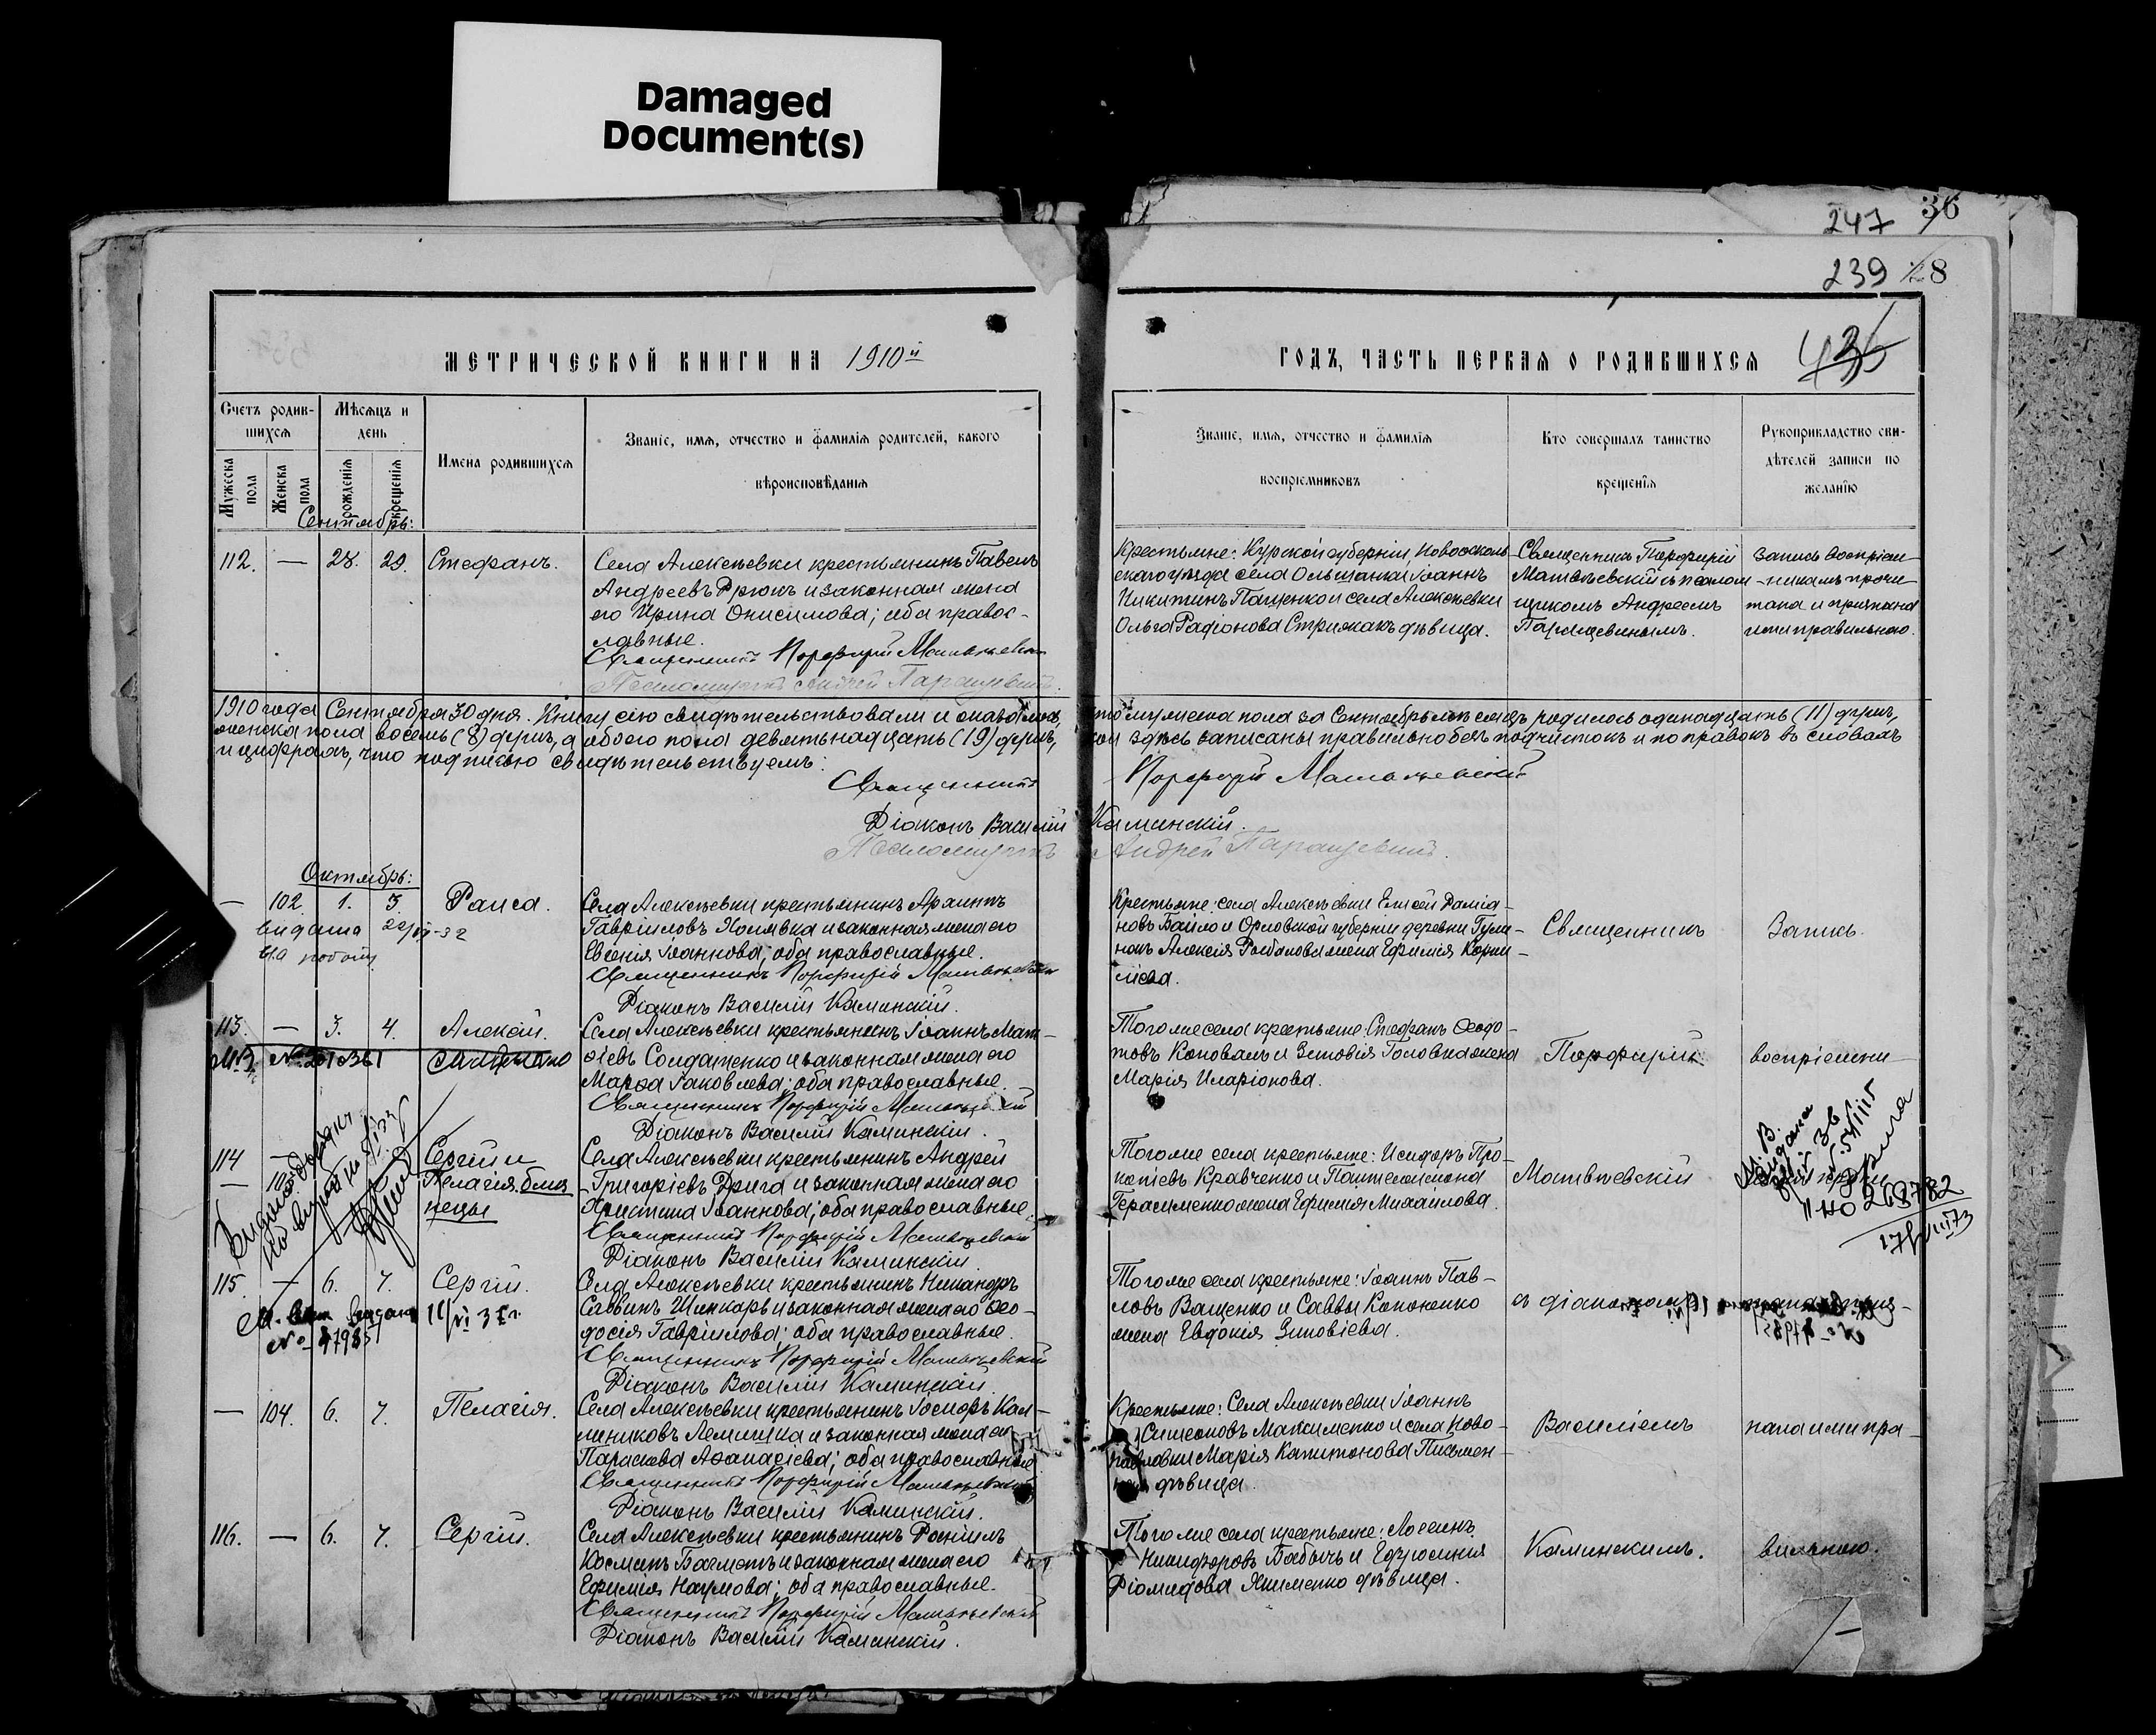 Damaged
Document(s)
247 36
239 8
МЕТРИЧЕСКОЙ КНИГИ НА 1910й
ГОДЪ, ЧАСТЬ ПЕРВАЯ О РОДИВШИХСЯ
Счетъ родив-
шихся
Мѣсяцъ и
день
Имена родившихся
Званіе, имя, отчество и фамилія родителей, какого
вѣроисповѣданія
Мужеска
пола
Женска
пола
рожденія
крещенія
Званіе, имя, отчество и фамилія
воспріемниковъ
Кто совершалъ таинство
крещенія
Рукоприкладство сви-
дѣтелей записи по
желанію
Сентябрь:
112. — 28. 29. Стефанъ.
Села Алексѣевки крестьянинъ Павелъ
Андреевъ Дрюкъ и законная жена
его Ирина Онисимова; оба правос-
лавные.
Священникъ Порфирій Матвѣевскій
Псаломщикъ Андрей Паращевинъ.
Крестьяне: Курской губерніи, Новоосколь-
скаго уѣзда села Ольшанки Іоаннъ
Никитинъ Пащенко и села Алексѣевки
Ольга Радіонова Стрижакъ дѣвица.
Священникъ Порфирій
Матвѣевскій съ псалом-
щикомъ Андреемъ
Паращевинымъ.
Запись воспріем-
никамъ прочи-
тана и признана
ими правильною.
1910 года Сентября 30 дня. Книгу сію свидѣтельствовали и оказалось, что мужеска пола за Сентябрь мѣсяцъ родилось одинадцать (11) душъ,
женска пола восемь (8) душъ, а обоего пола девятьнадцать (19) душъ, кои здѣсь записаны правильно безъ подчистокъ и поправокъ въ словахъ
и цифрахъ, что подписью свидѣтельствуемъ:
Священникъ Порфирій Матвѣевскій
Діаконъ Василій Каминскій.
Псаломщикъ Андрей Паращевинъ.
Октябрь:
— 102. 1. 3. Раиса.
видана
Села Алексѣевки крестьянинъ
Гавріиловъ и законная жена его
Евгенія Іоаннова; оба православные.
Священникъ Порфирій Матвѣевскій
Діаконъ Василій Каминскій.
Крестьяне: села Алексѣевки Елисей Даміа-
новъ Байло и Орловской губерніи деревни
Алексія Рыбалова жена Ефимія Корни-
ліева.
Священникъ
Запись
113. — 3. 4. Алексій.
Села Алексѣевки крестьянинъ Іоаннъ Мат-
ѳіевъ Солдатенко и законная жена его
Марѳа Іаковлева; оба православные.
Священникъ Порфирій Матвѣевскій
Діаконъ Василій Каминскій.
Того же села крестьяне: Стефанъ Ѳеодо-
товъ Коновалъ и Зиновія Головка жена
Марія Иларіонова.
Порфирій
воспріемни-
114
—
Сергій и
Пелагія близ-
нецы
Села Алексѣевки крестьянинъ Андрей
Григоріевъ Дрига и законная жена его
Христина Іоаннова; оба православные.
Священникъ Порфирій Матвѣевскій
Діаконъ Василій Каминскій.
Того же села крестьяне: Исидоръ Про-
копіевъ Кравченко и Пантелеимона
Герасименко жена Ефимія Михаилова.
Матвѣевскій
115. — 6. 7. Сергій.
Села Алексѣевки крестьянинъ Никандръ
Саввинъ Шинкарь и законная жена его Ѳео-
досія Гавріилова; оба православные.
Священникъ Порфирій Матвѣевскій
Діаконъ Василій Каминскій.
Того же села крестьяне: Іоаннъ Пав-
ловъ Ващенко и Саввы Кононенко
жена Евдокія Зиновіева.
съ діакономъ
— 104. 6. 7. Пелагія.
Села Алексѣевки крестьянинъ Іосифъ Кал-
линиковъ Лемишка и законная жена его
Параскева Аѳанасіева; оба православные
Священникъ Порфирій Матвѣевскій
Діаконъ Василій Каминскій.
Крестьяне: Села Алексѣевки Іоаннъ
Симеоновъ Максименко и села Ново-
павловки Марія Капитонова Писмен-
ная дѣвица.
Василіемъ
нана ими пра-
116. — 6. 7. Сергій.
Села Алексѣевки крестьянинъ Даніилъ
Косминъ и законная жена его
Ефимія Наумова; оба православные.
Священникъ Порфирій Матвѣевскій
Діаконъ Василій Каминскій.
Того же села крестьяне: Логгинъ
Никифоровъ Бабычъ и Ефросинія
Діомидова Якименко дѣвица.
Каминскимъ.
вильною.